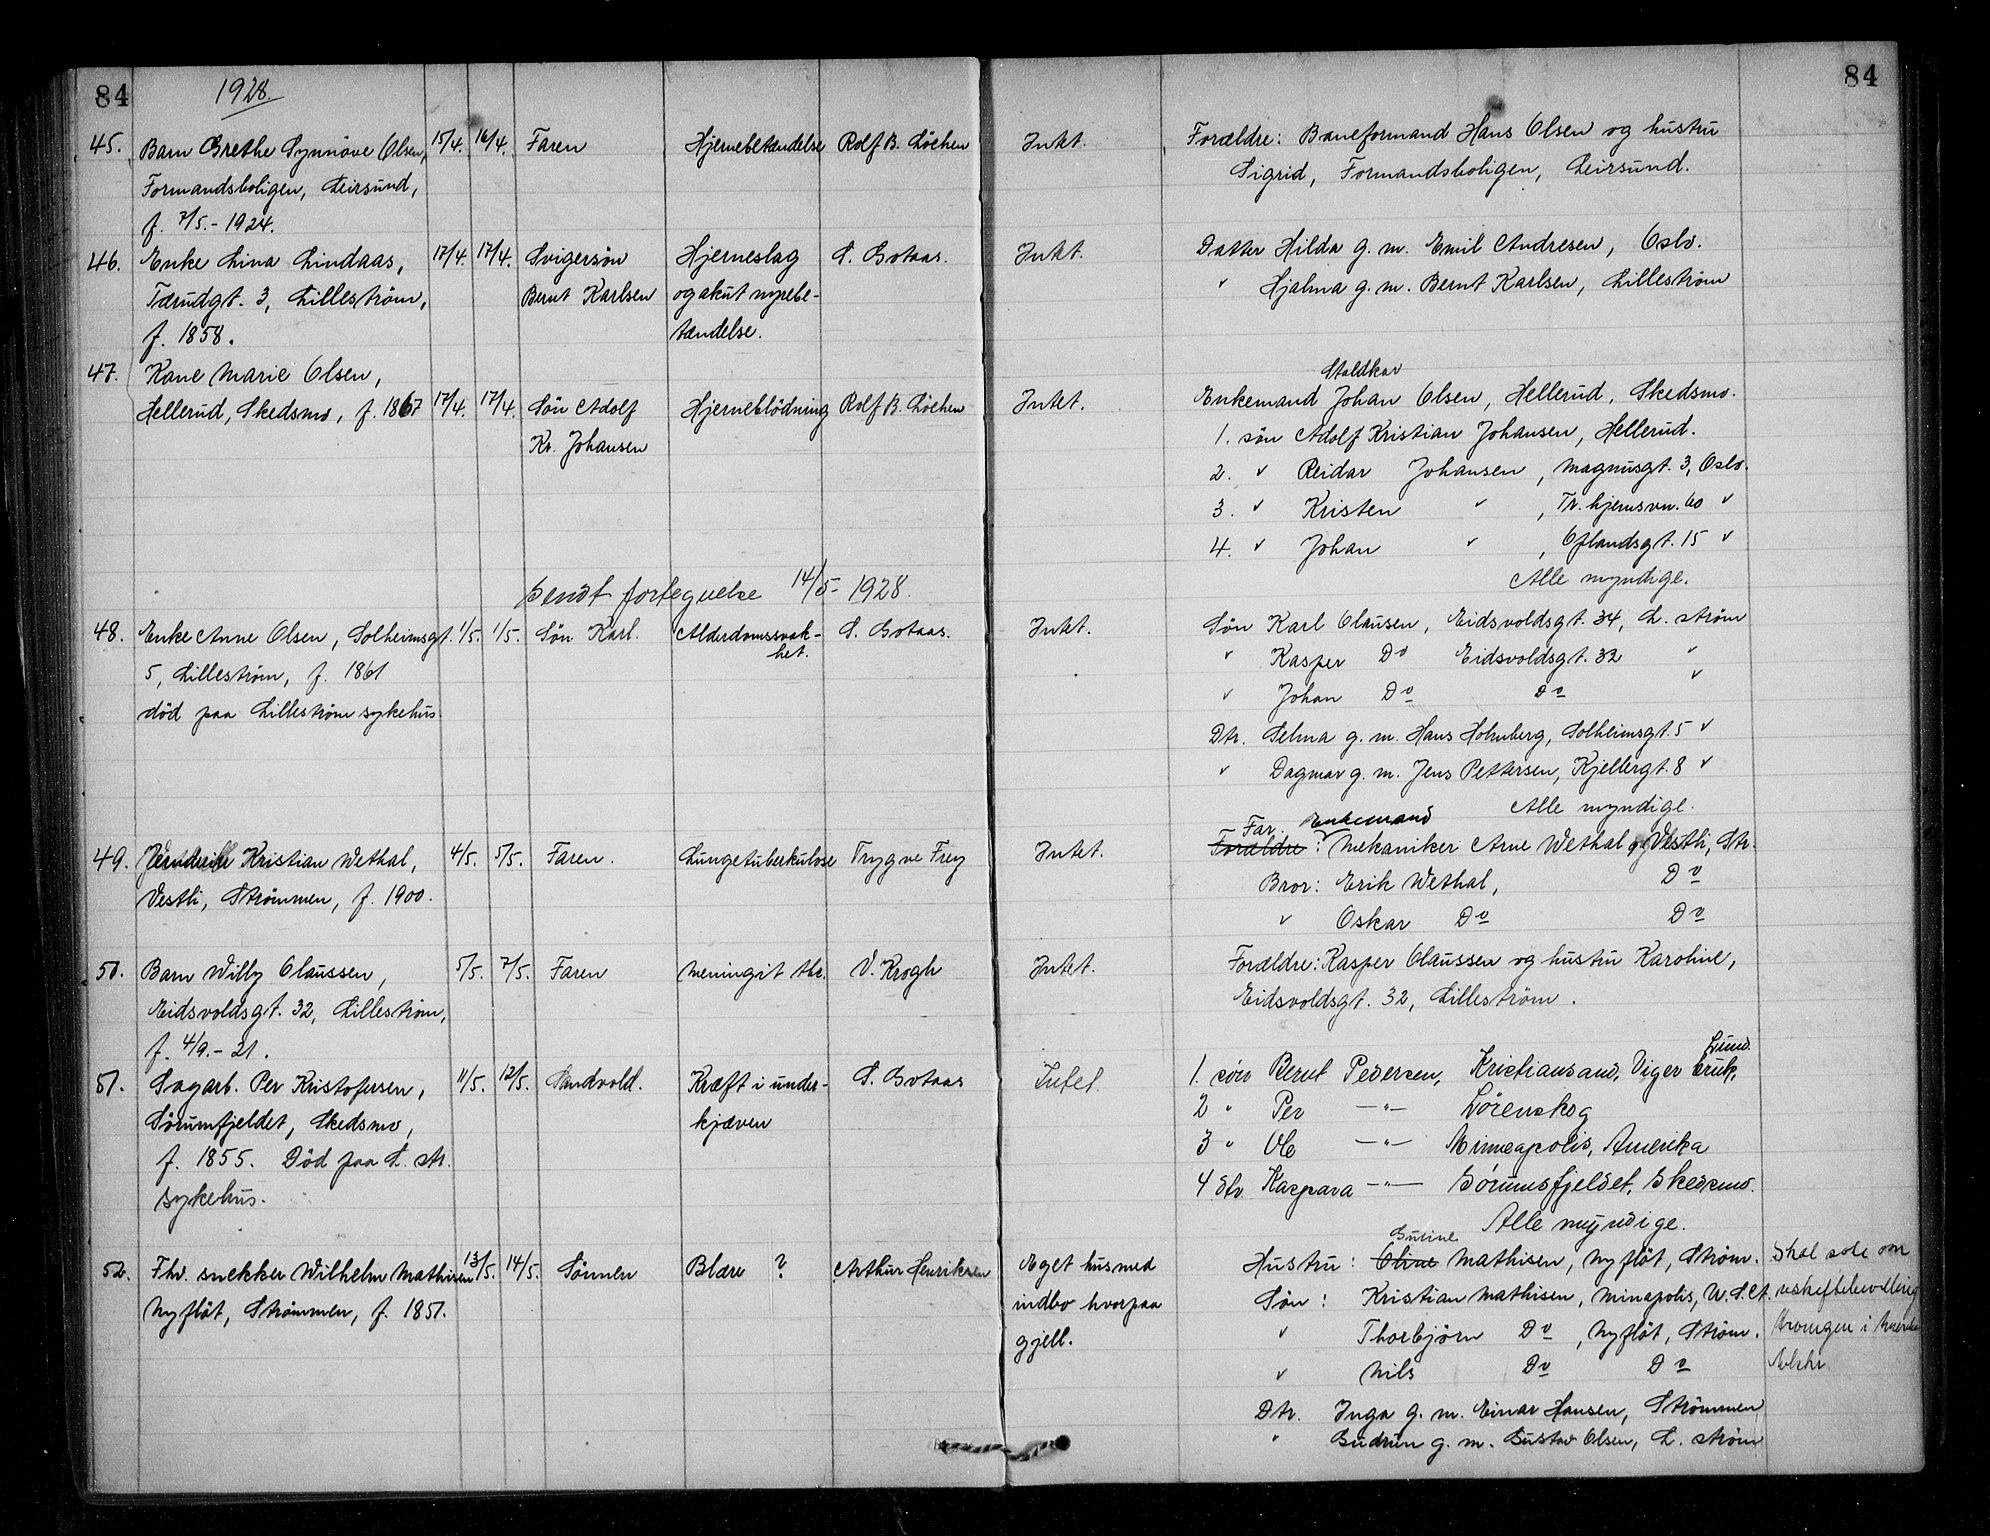 84
1928.
84
45. Barn Grethe Synnöve Olsen, 15/4. 16/4. Faren Hjernebetændelse Rolf B. Löchen Intet. Forældre: Baneformand Hans Olsen og hustru
Formandsboligen, Leirsund, Sigrid, Formandsboligen, Leirsund.
f. 7/5.-1924.
46. Enke Lina Lindaas, 17/4. 17/4. Svigersön Hjerneslag S. Gotaas. Intet. Datter Hilda g. m. Emil Andresen, Oslo.
Tærudgt. 3, Lilleström, Bernt Karlsen og akut nyrebe- " Hjalma g. m. Bernt Karlsen, Lilleström
f. 1858. tændelse.
47. Kone Marie Olsen, Staldkar
Hellerud, Skedsmo, f. 1867 17/4. 17/4. Sön Adolf Hjerneblödning Rolf B. Löchen Intet. Enkemand Johan Olsen, Hellerud, Skedsmo.
Kr. Johansen 1. sön Adolf Kristian Johansen, Hellerud.
2. " Reidar Johansen, Magnusgt. 3, Oslo.
3. " Kristen " , Tr.hjemsvn. 60 "
4. " Johan " , Oflandsgt. 15 "
Alle myndige.
Sendt fortegnelse 14/5-1928.
48. Enke Anne Olsen, Solheimsgt. 1/5. 1/5. Sön Karl. Alderdomssvak- S. Gotaas. Intet. Sön Karl Clausen, Eidsvoldsgt. 34, L. ström
5, Lilleström, f. 1861 het. " Kasper Do Eidsvoldsgt. 32 "
död paa Lilleström sykehus. " Johan Do Do "
Dtr. Selma g. m. Hans Holmberg, Solheimsgt. 5 "
" Dagmar g. m. Jens Pettersen, Kjellergt. 8 "
Alle myndige.
Far. Enkemand
49. Kristian Wethal, 4/5. 5/5. Faren. Lungetuberkulose Trygve Frey Intet. Forældre: Mekaniker Arne Wethal og Vestli, Str.
Vestli, Strømmen, f. 1900. Bror: Erik Wethal, Do
" Oskar Do Do
50. Barn Willy Claussen, 5/5. 7/5. Faren Meningit tbc. V. Krogh Intet. Forældre: Kasper Claussen og hustru Karoline,
Eidsvoldsgt. 32, Lilleström, Eidsvoldsgt. 32, Lilleström.
f. 4/9.-21.
Lund.
51. Sagarb. Per Kristofersen, 11/5. 12/5. Sandvold. Kræft i under- S. Gotaas Intet. 1. sön Bernt Pedersen, Kristiansand, Viger bruk,
Sörumfjeldet, Skedsmo, kjæven 2 " Per -"- Lörenskog
f. 1855. Död paa L. str. 3 " Ole -"- Minneapolis, Amerika
sykehus. 4 dtr. Kaspara -"- Sörumsfjeldet, Skedsmo.
Alle myndige.
Guline
52. Fhv. snekker Wilhelm Mathisen 13/5. 14/5. Sönnen Blære ? Arthur Henriksen Eget hus med Hustru: Oline Mathisen, Nyflöt, Ström. Skal söke om
Nyflöt, Strømmen, f. 1851. indbo hvorpaa Sön: Kristian Mathisen, Minapolis, U.S.A. uskiftebevilling
gjell. " Thorbjörn Do, Nyflöt, Ström. i Amerika
" Nils Do Do
Dtr. Inga g. m. Einar Hansen, Strømmen
" Gudrun g. m. Gustav Olsen, L. ström